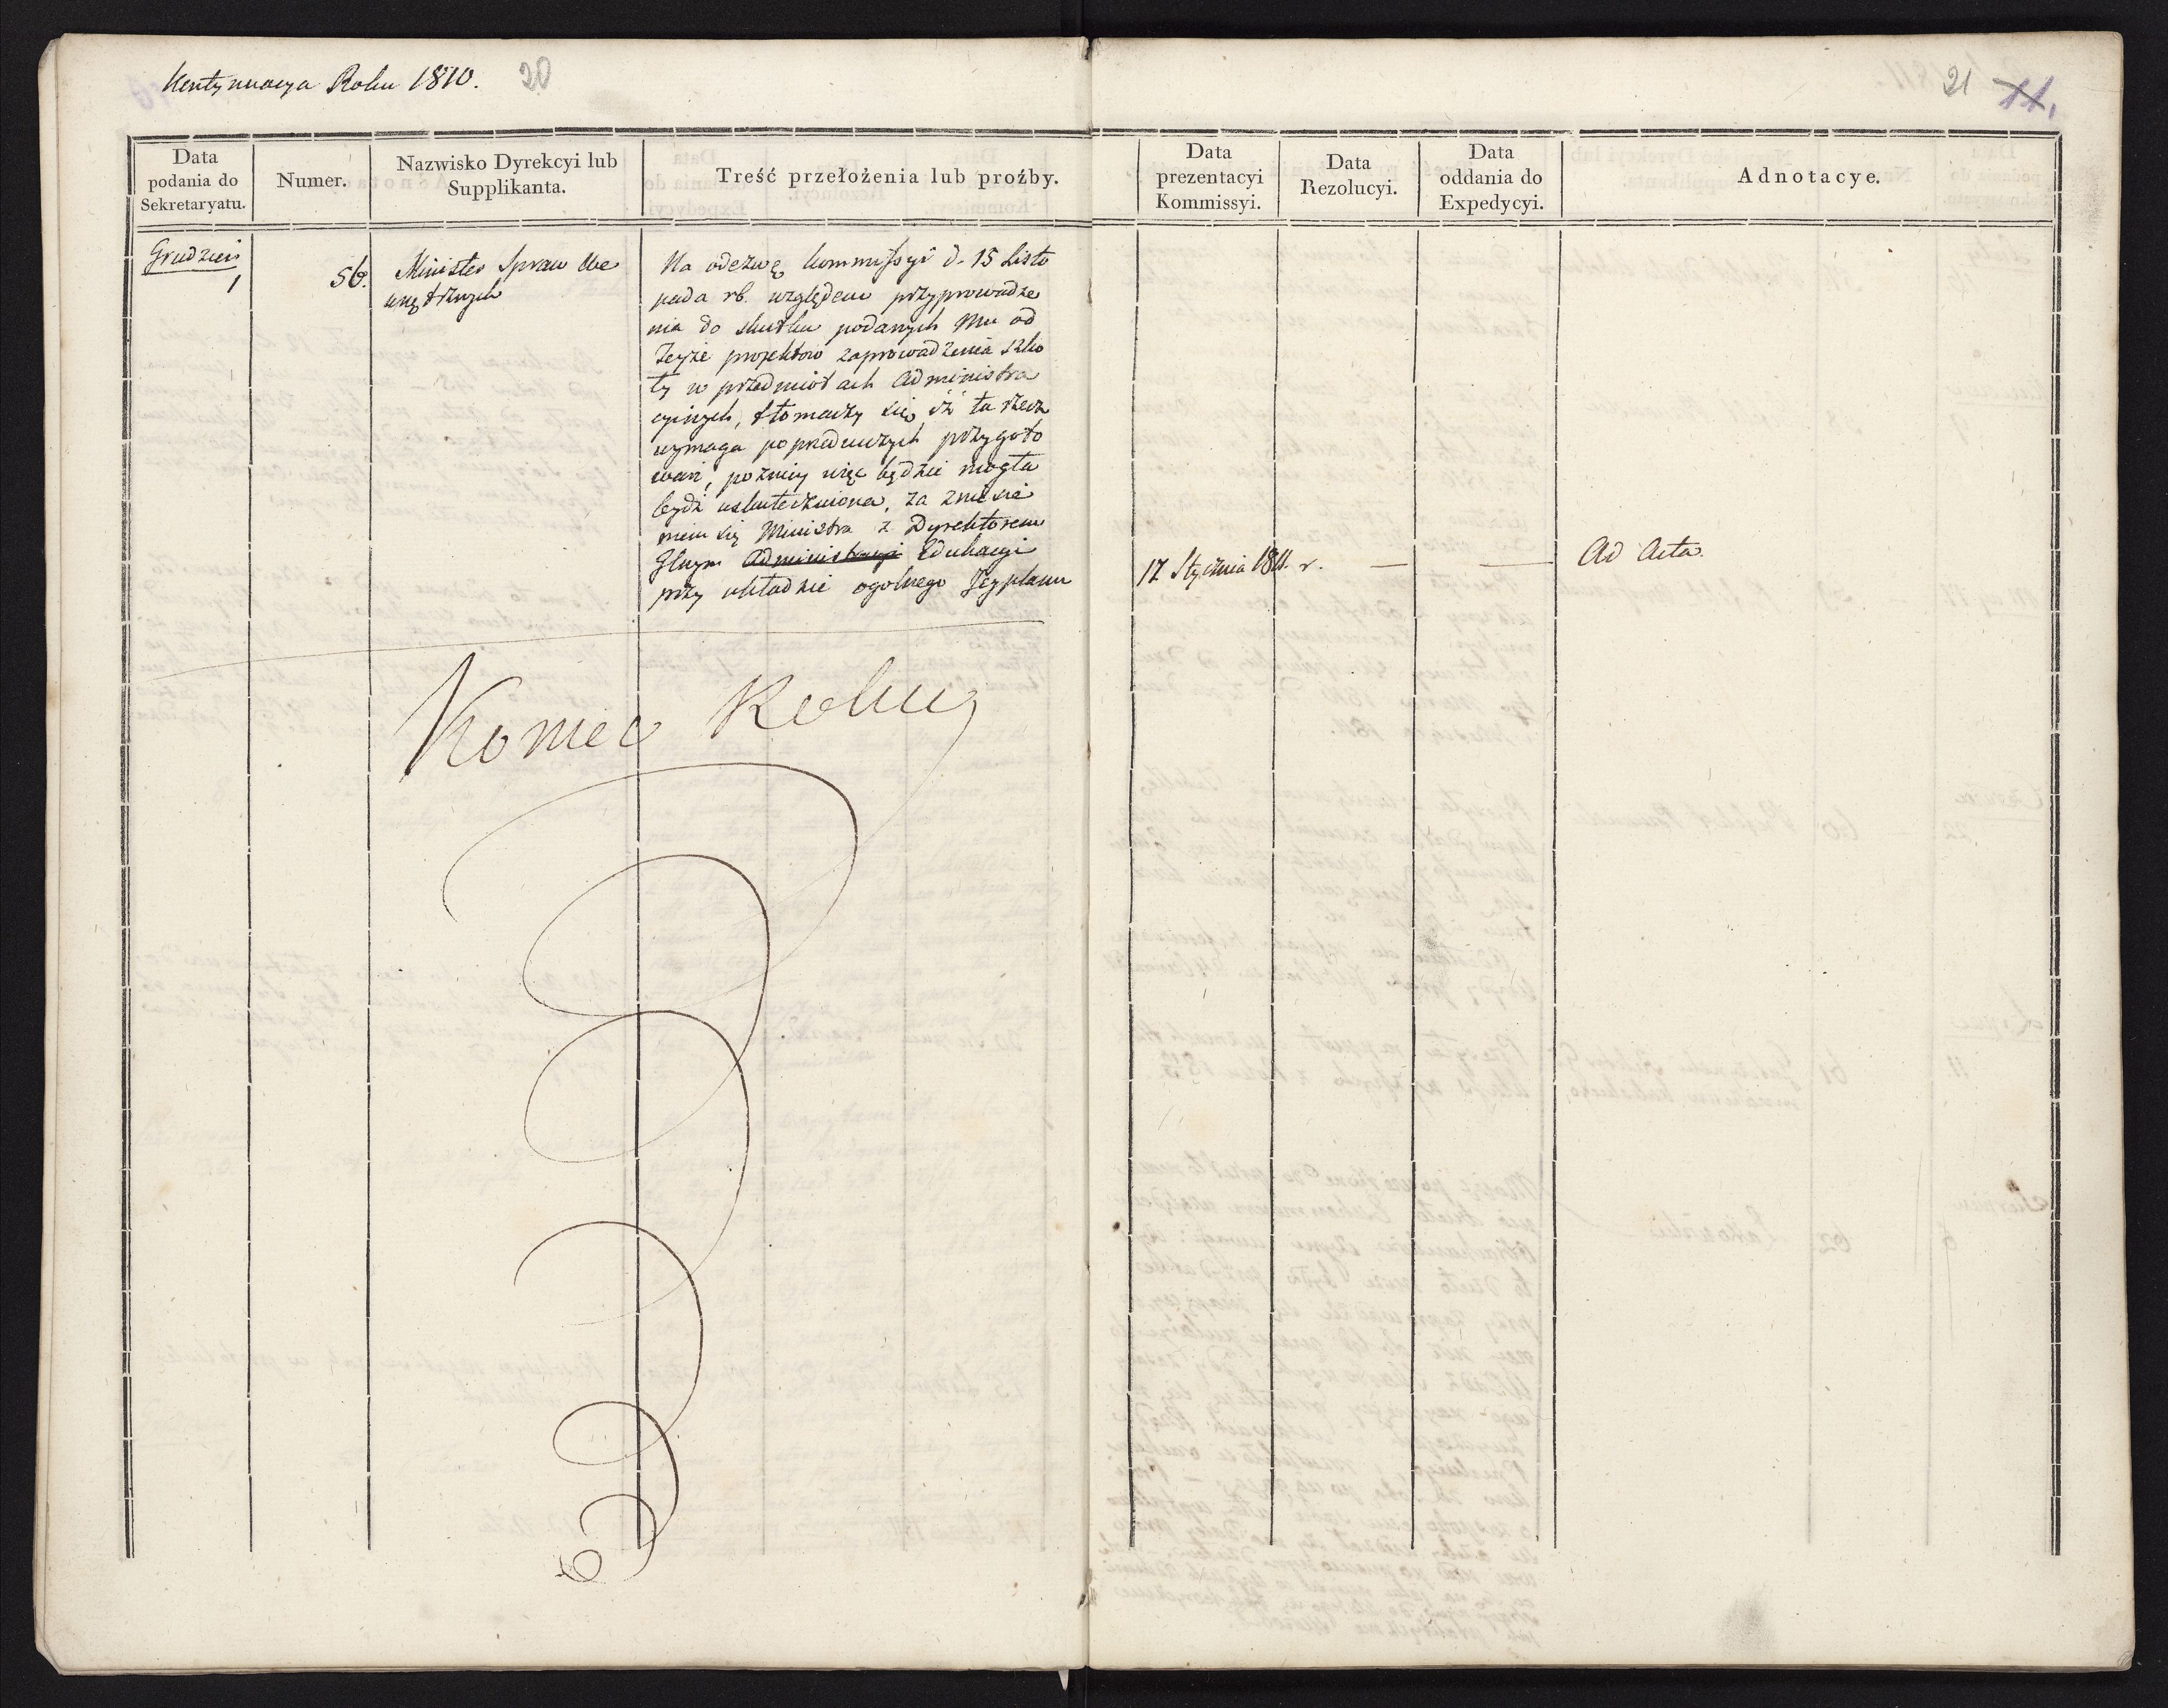 Kontynuacya Roku 1810. 20
21 11.
Data podania do Sekretaryatu.
Numer.
Nazwisko Dyrekcyi lub Supplikanta.
Treść przełożenia lub proźby.
Data prezentacyi Kommissyi.
Data Rezolucyi.
Data oddania do Expedycyi.
Adnotacye.
Grudzień
1
56.
Minister Spraw We
wnętrznych
Na odezwę Kommissyi d. 15 Listo
pada rb. względem przyprowadze
nia do skutku podanych Mu od
Teyże projektów zaprowadzenia szko
ły w przedmiotach Administra
cyinych, tłomaczy się, iż ta rzecz
wymaga poprzedniczych przygoto
wań, pozniey więc będzie mogła
bydź uskuteczniona, za zniesie
niem się Ministra z Dyrektorem
Głnym Administracyi Edukacyi
przy układzie ogolnego Jey planu
17 Stycznia 1811. r. — —
Ad Acta.
Koniec Roku